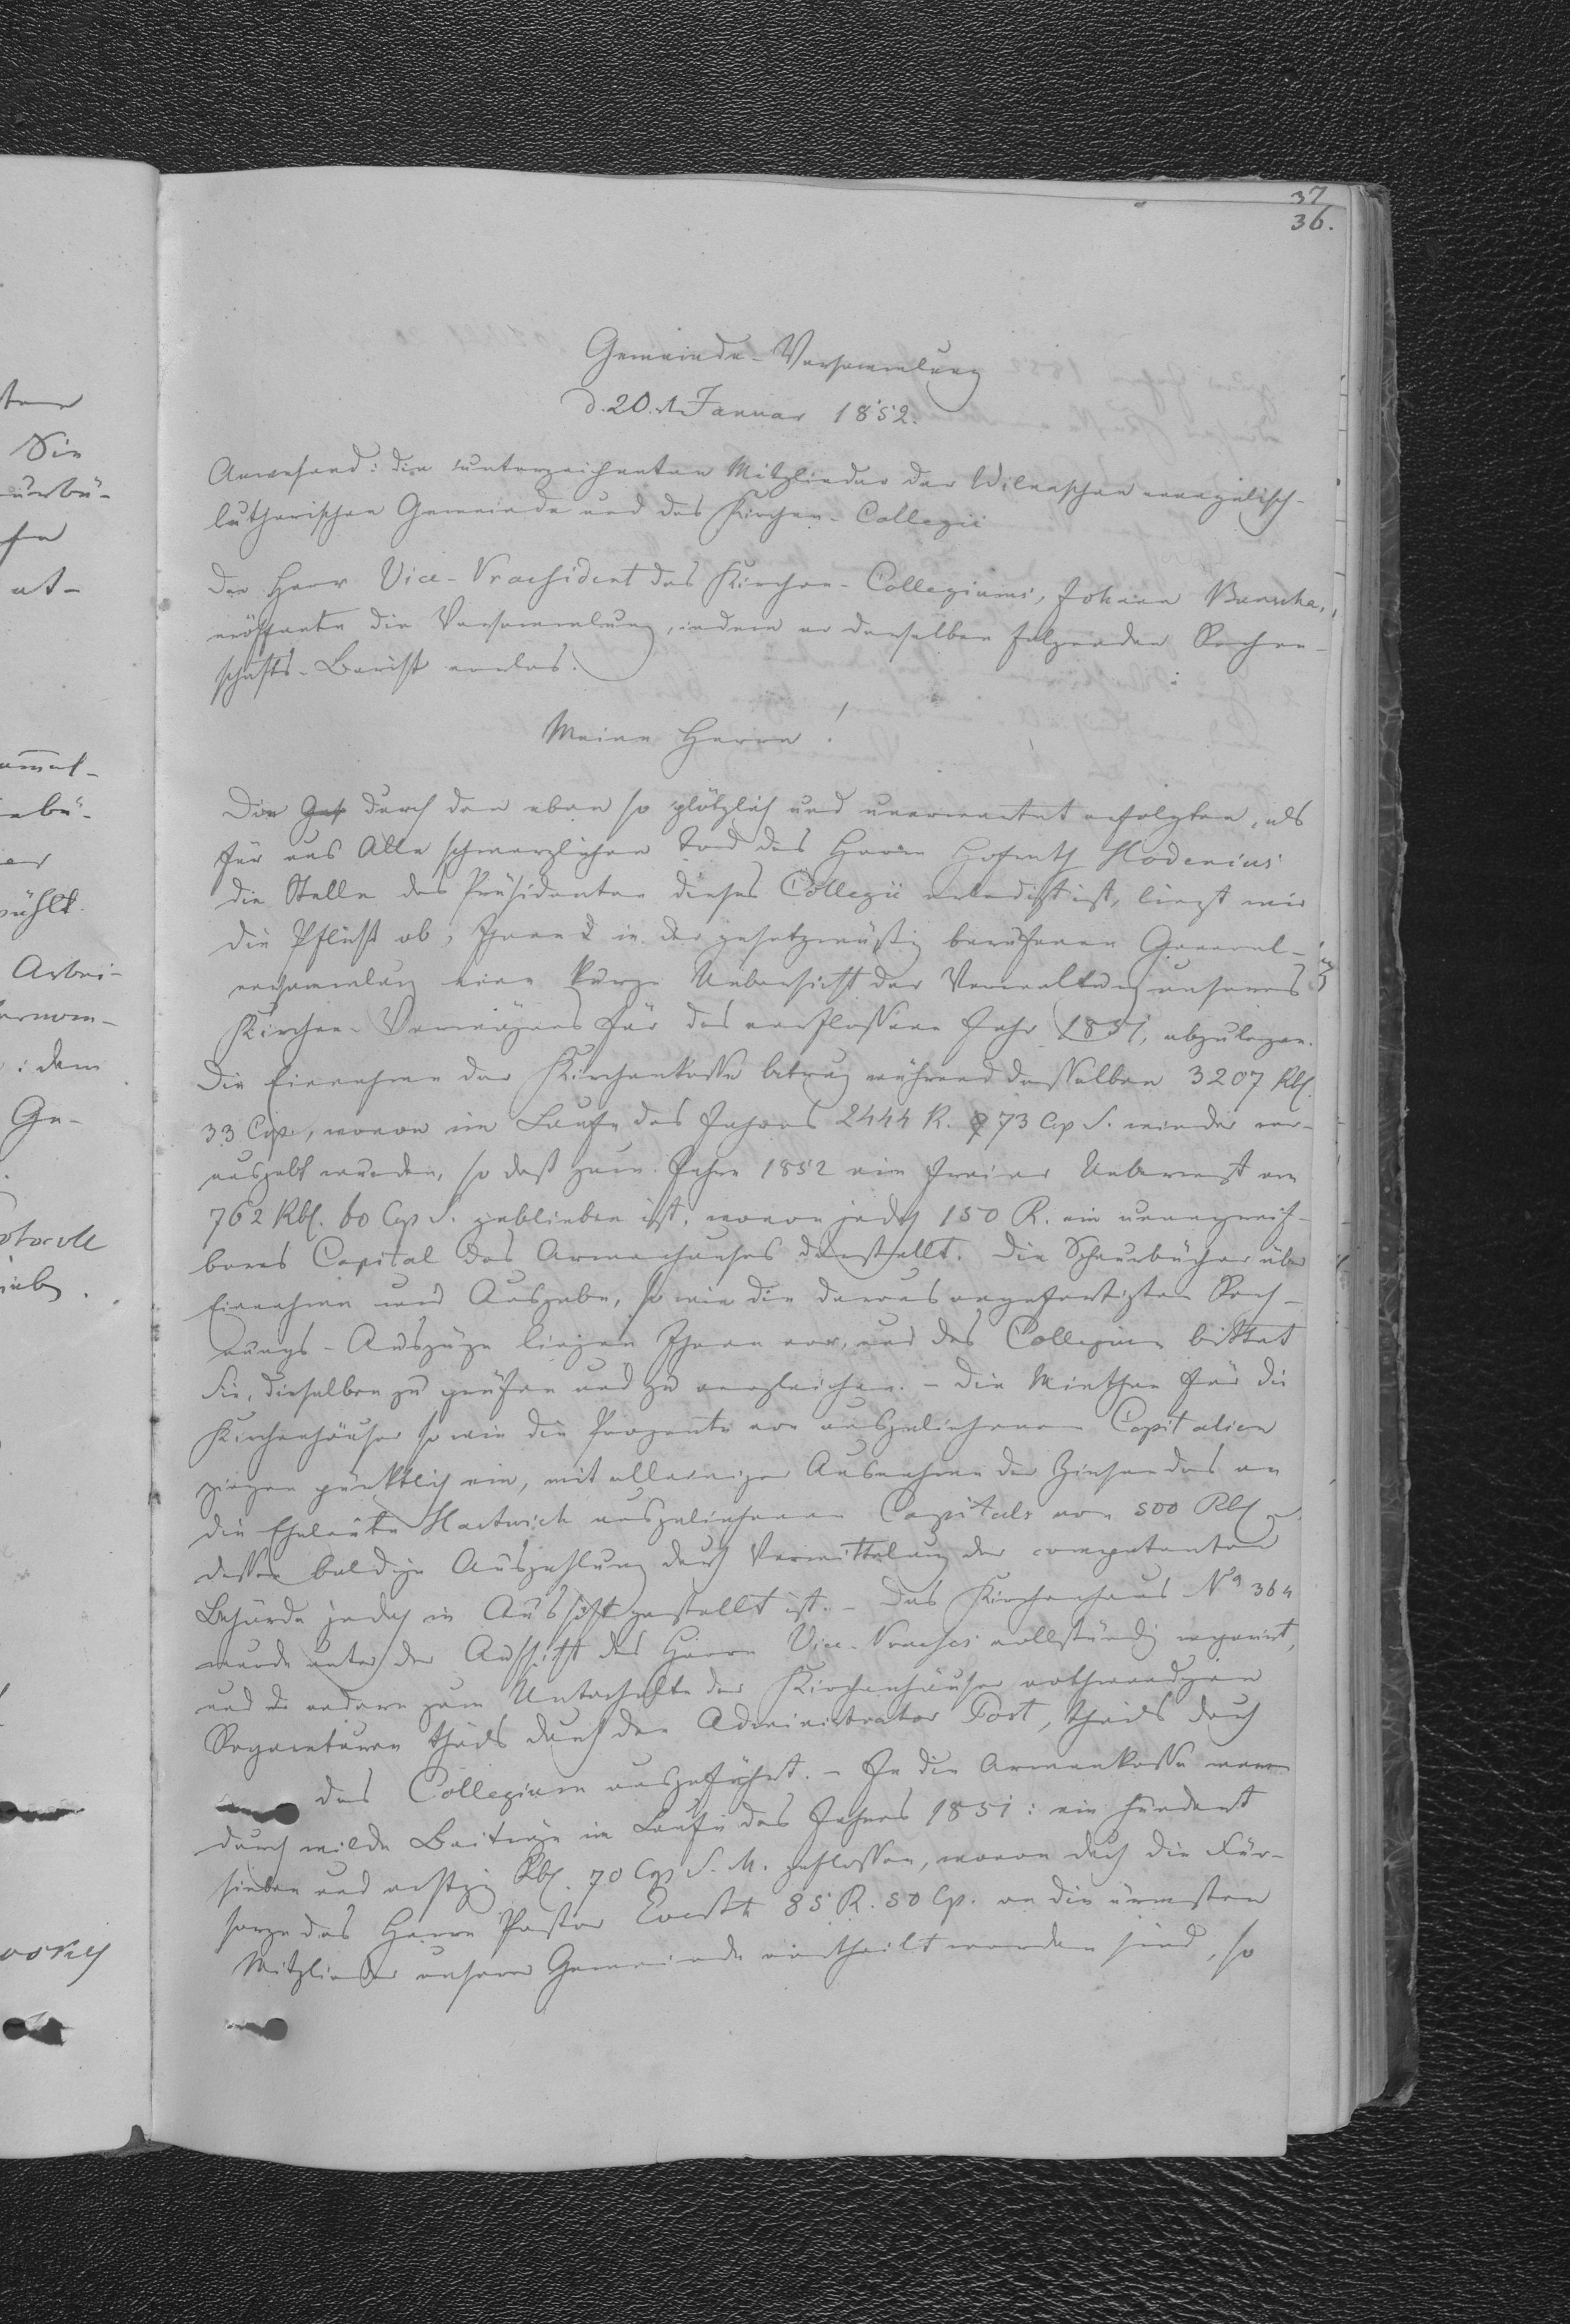 37
36.
Gemeinde-Versammlung
d. 20. Januar 1852.
Anwesend: die unterzeichneten Mitglieder der Wilnaschen evangelisch-
lutherischen Gemeinde und des Kirchen-Collegii
Der Herr Vice-Praesident des Kirchen-Collegiums, Johann
eröffnete die Versammlung, indem er derselben folgenden Rechen-
schafts-Bericht vorlas:
Meine Herrn!
Da durch den eben so plötzlich und unerwartet erfolgten, als
für uns Alle schmerzlichen Tod des Herrn Hofrath Hodenius
die Stelle des Präsidenten dieses Collegii erledigt ist, liegt mir
die Pflicht ob, Ihnen in der gesetzmäßig berufenen General-
versammlung eine kurze Uebersicht der Verwaltung unseres
Kirchen-Vermögens für das verflossene Jahr 1851, abzulegen.
Die Einnahme der Kirchenkasse betrug während desselben 3207 Rbl.
33 Cop, wovon im Laufe des Jahres 2444 R. 73 Cop S. wieder ver-
ausgabt wurden, so daß zum Jahre 1852 ein freier Ueberrest von
762 Rbl. 60 Cop S. geblieben ist, wovon jedoch 150 R. ein unangreif-
bares Capital des Armenhauses darstellt. Die Schnurbücher über
Einnahme und Ausgabe, so wie die daraus angefertigten Rech-
nungs-Auszüge liegen Ihnen vor, und das Collegium bittet
Sie, dieselben zu prüfen und zu vergleichen. - Die Miethen für die
Kirchenhäuser so wie die Prozente von ausgeliehenen Capitalien
gingen pünktlich ein, mit alleiniger Ausnahme der Zinsen des an
die Eheleute Hartwich ausgeliehenen Capitals von 500 Rbl,
dessen baldige Auszahlung durch Vermittelung der competenten
Behörde jedoch in Aussicht gestellt ist. - Das Kirchenhaus No 364
wurde unter der Aufsicht des Herrn Vice-Praeses vollständig reparirt,
und die andern zum Unterhalte der Kirchenhäuser nothwendigen
Reparaturen theils durch den Administrator Fort, theils durch
das Collegium ausgeführt. - In die Armenkasse waren
durch milde Beiträge im Laufe des Jahres 1851: ein hundert
sieben und achtzig Rbl. 70 Cop S. M. geflossen, wovon durch die Für-
sorge des Herrn Pastor 85 R. 50 Cp. an die ärmsten
Mitglieder unserer Gemeinde vertheilt worden sind, so